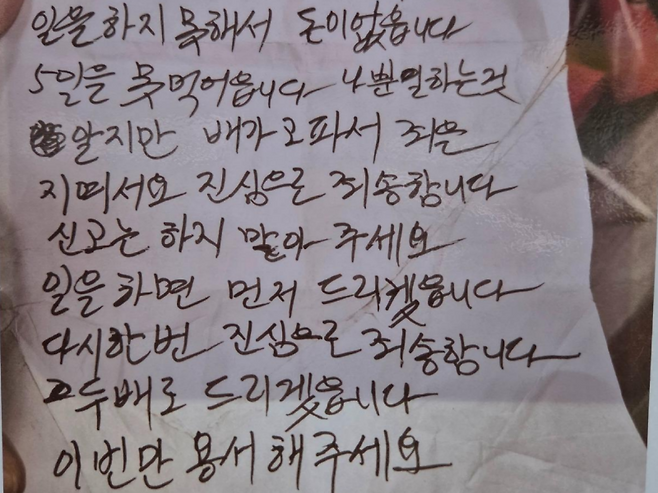 일믈하지 못해서 돈이없읍니다
5일을 못 먹어읍니다 나뿐일하는것
알지만 배가고파서 죄을
지떠서요 진심으로 죄송합니다
신고는 하지 말아 주세요
일을하면 먼저 드리겠읍니다
다시한번 진심으로 죄송합니다
두배로 드리겠읍니다
이번만 용서 해주세요